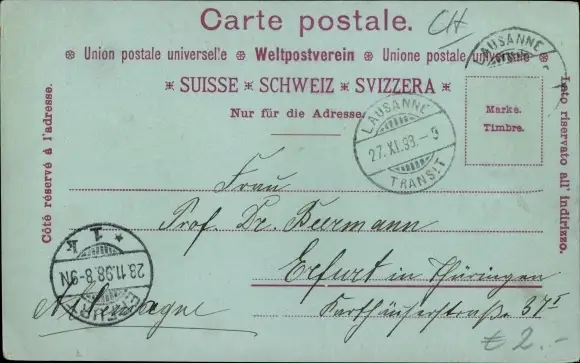 Carte postale. CH
※ Union postale universelle ※ Weltpostverein ※ Unione postale universale ※
※ SUISSE ※ SCHWEIZ ※ SVIZZERA ※
Nur für die Adresse.
Marke.
Timbre.
LAUSANNE
LAUSANNE
27.XI.98.-9
TRANSIT
Côté réservé à l'adresse.
Lato riservato all' indirizzo.
Frau
Prof. Dr. Beermann
Erfurt in Thüringen
Allemagne Karthäuserstraße. 37 I
* 1 k
28.11.98.8-9N
ERFURT
€ 2.-